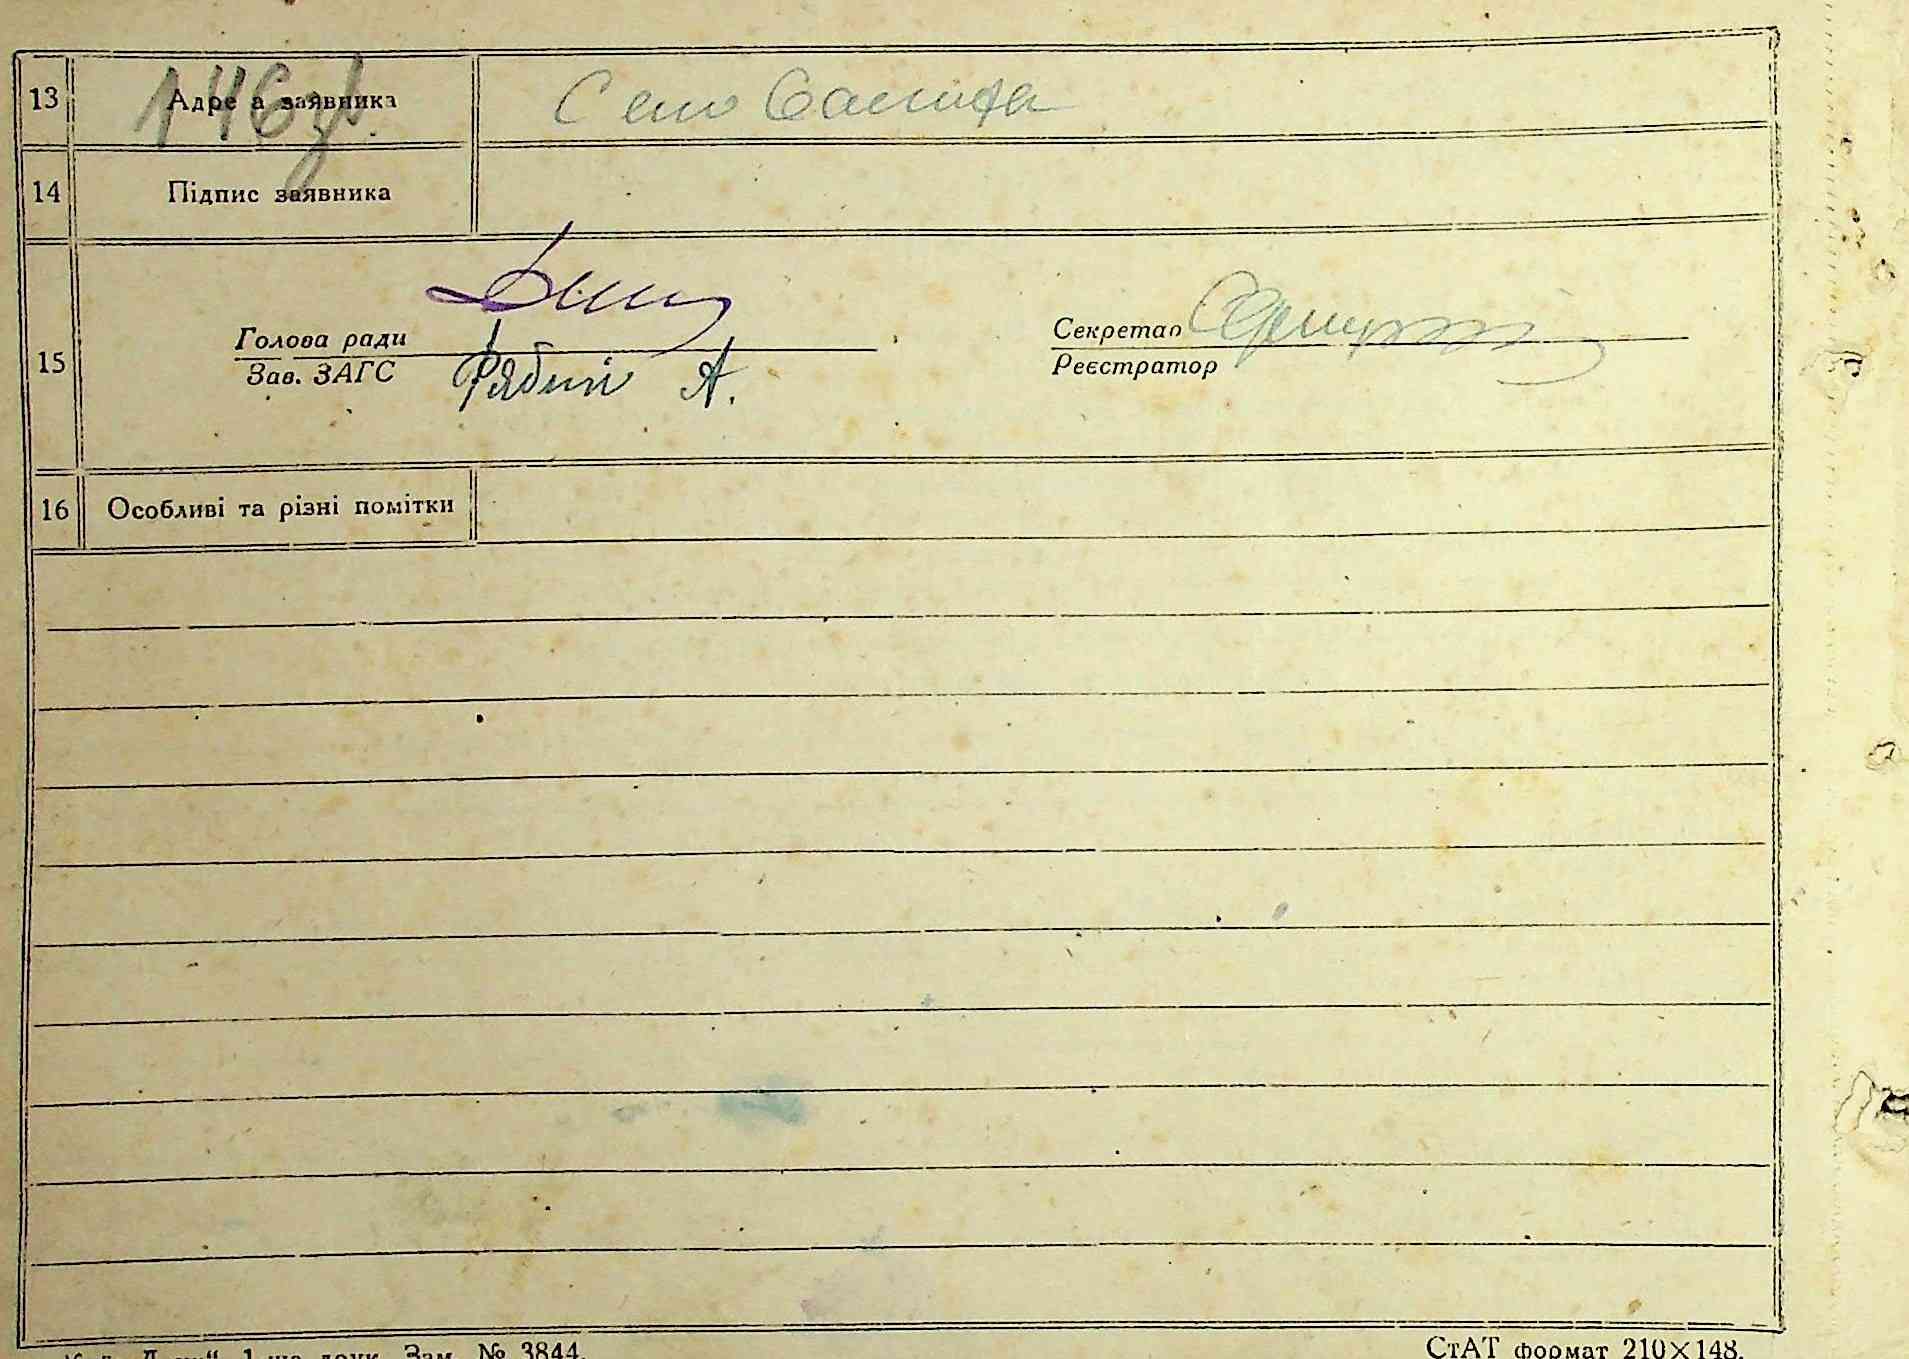 13 Адре а заявника Село
146 зв.
14 Підпис заявника
15 Голова ради
Зав. ЗАГС Рябий А.
Секретар
Реєстратор
16 Особливі та різні помітки
1 ша друк. Зам. № 3844.
СтАТ формат 210×148.